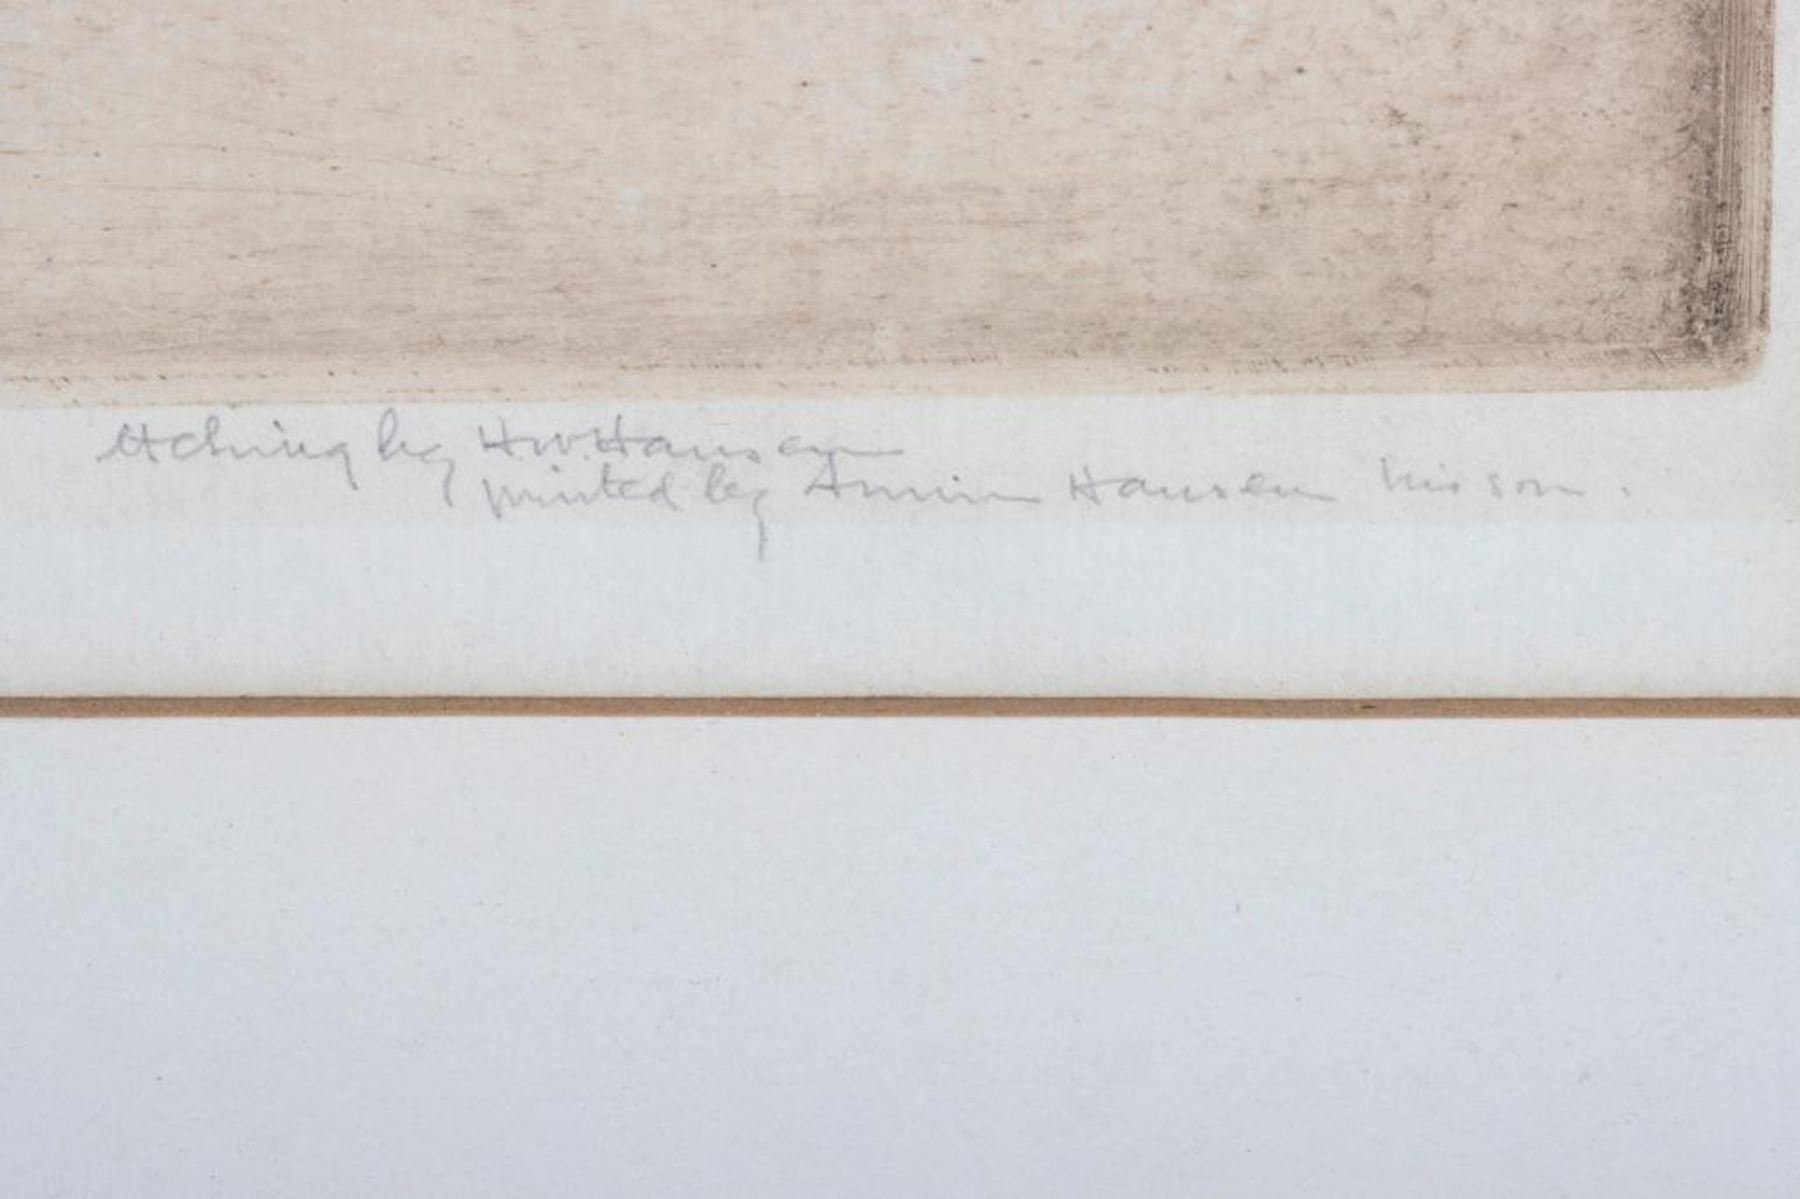 Etching by H.W. Hansen
printed by Armin Hansen his son.